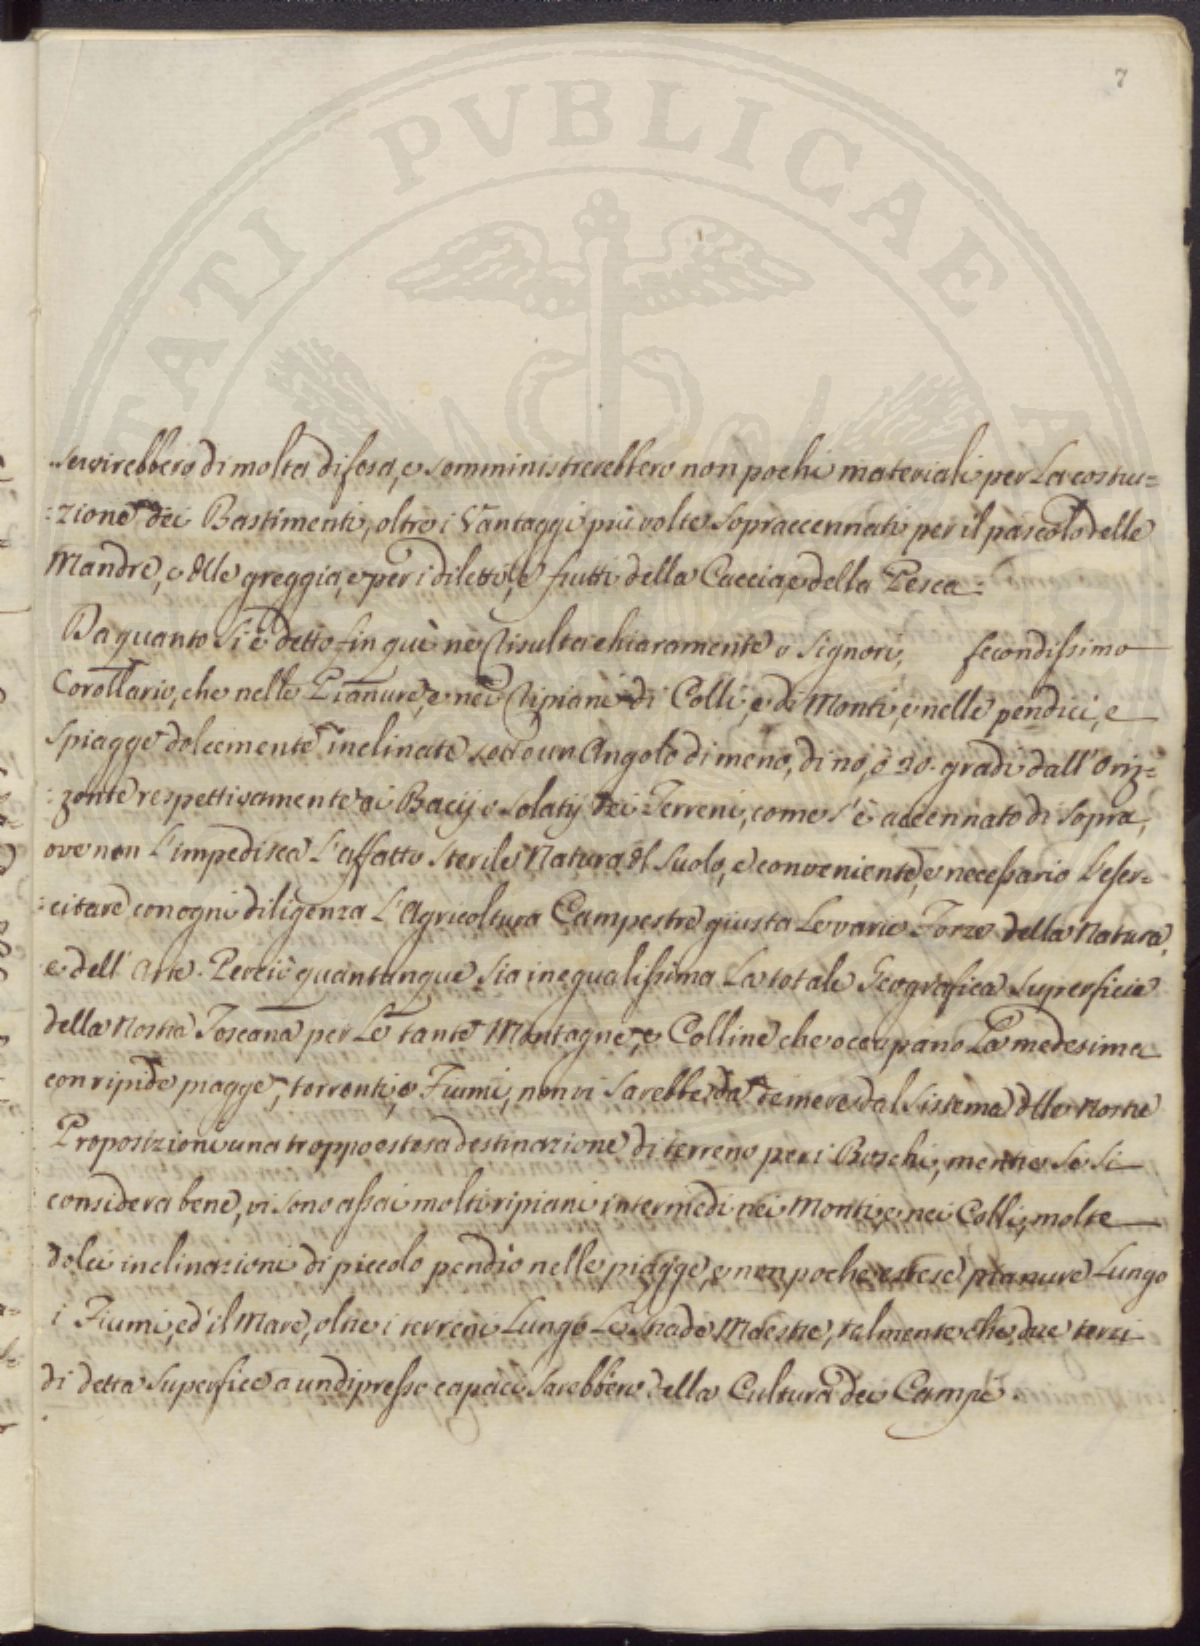 7
servirebbero di molta difesa, e somministrerebbero non pochi materiali per La costru=
=zione dei Bastimenti, oltre i Vantaggi più volte Sopraccennati per il pascolo delle
Mandre, e dlle greggia, e per i diletti, e frutti della Caccia, e della Pesca.
Da quanto Si è detto fin quì ne risulta chiaramente o Signori, fecondissimo
Corollario, che nelle Pianure, e nei ripiani di Colli, e di Monti, e nelle pendici, e
Spiagge dolcemente inclinate sotto un Angolo di meno, di no, o 30. gradi dall'Oriz=
=zonte respettivamente ai Bacij e Solatij dei Terreni, come s'è accennato di Sopra,
ove non L'impedisca L'affatto Sterile Natura dl Suolo, è conveniente, e necessario L'eser=
=citare con ogni diligenza L'Agricoltura Campestre giusta Le varie Forze della Natura,
e dell'Arte. Perciò quantunque Sia inegualissima La totale Geografica Superficie
della Nostra Toscana per Le tante Montagne, e Colline che occupano La medesima
con ripide piagge, torrenti, e Fiumi, non vi Sarebbe da temere dal Sistema dlle Nostre
Proposizioni una troppo estesa destinazione di terreno per i Boschi, mentre se Si
considera bene, vi Sono assai molti ripiani intermedi nei Monti, e nei Colli, molte
dolci inclinazioni di piccolo pendio nelle piagge, e non poche estese pianure Lungo
i Fiumi, ed il Mare, oltre i terreni Lungo Le Strade Maestre, talmente che due terzi
di detta Superfice a un dipresso capaci Sarebbero della Cultura dei Campi.
PVBLICAE